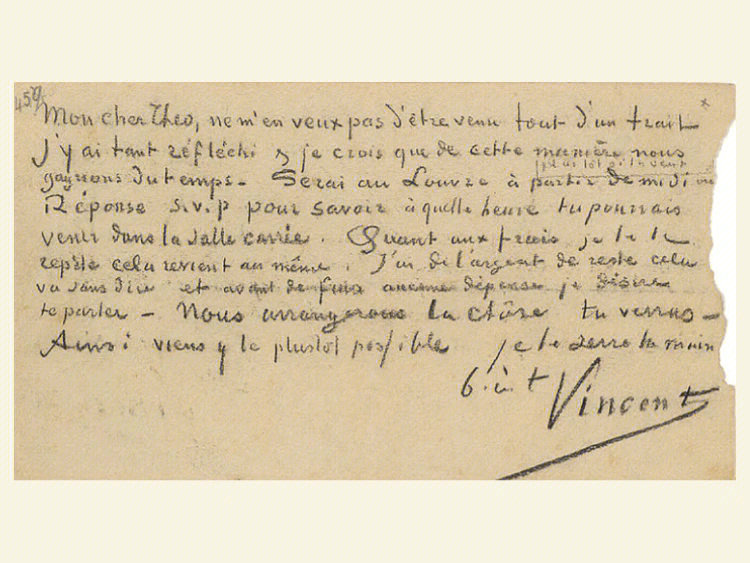 459
Mon cher Theo, ne m'en veux pas d'être venu tout d'un trait
J'y ai tant réfléchi & je crois que de cette manière nous
gagnons du temps – Serai au Louvre à partir de midi ou
plus tôt si tu veut
Réponse s.v.p pour savoir à quelle heure tu pourrais
venir dans la salle carrée. Quant aux frais je te le
repète cela revient au même. J'ai de l'argent de reste cela
va sans dire et avant de faire aucune dépense je désire
te parler – Nous arrangerons la chôse tu verras –
Ainsi viens y le plustot possible je te serre la main
b. à t Vincent